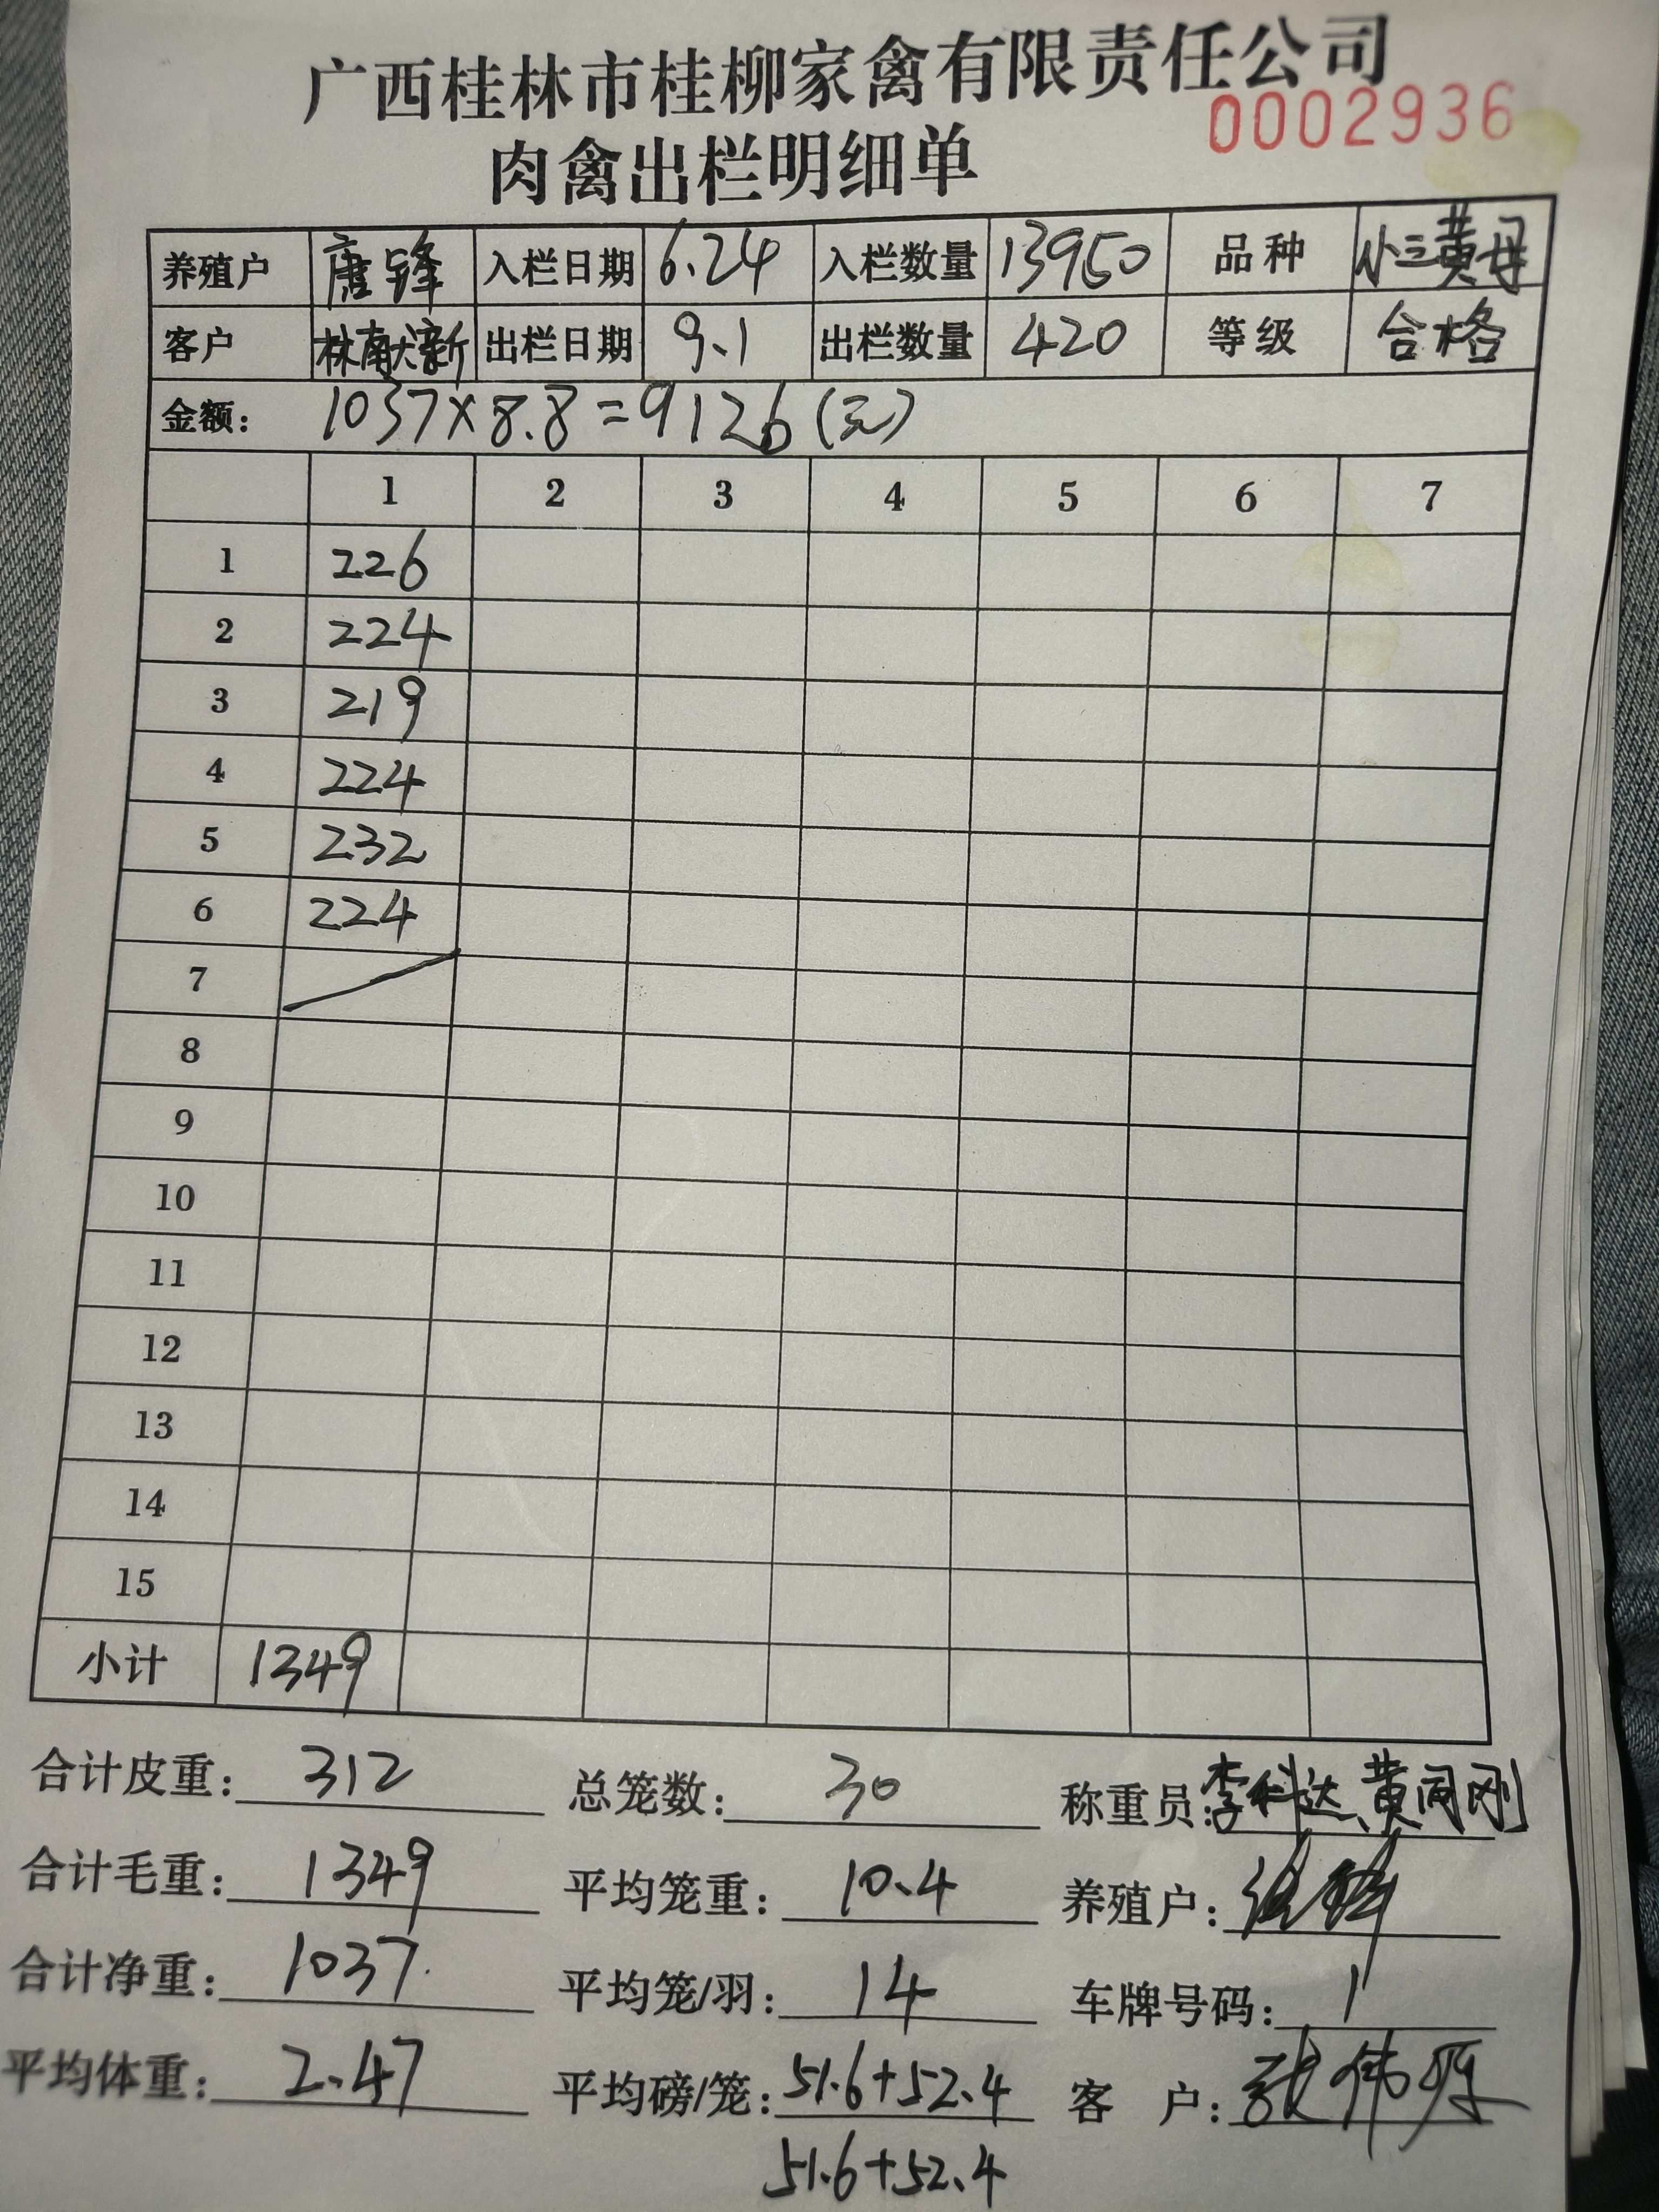 广西桂林市桂柳家禽有限责任公司
0002936
肉禽出栏明细单
养殖户 唐锋 入栏日期 6.24 入栏数量 13950 品种 小三黄母
客户 林献新 出栏日期 9.1 出栏数量 420 等级 合格
金额: 1037×8.8=9126(元)
1 2 3 4 5 6 7
1 226
2 224
3 219
4 224
5 232
6 224
7
8
9
10
11
12
13
14
15
小计 1349
合计皮重: 312 总笼数: 30 称重员: 李科达、黄同刚
合计毛重: 1349 平均笼重: 10.4 养殖户:
合计净重: 1037 平均笼/羽: 14 车牌号码: 1
平均体重: 2.47 平均磅/笼: 51.6+52.4 客 户: 张伟
51.6+52.4